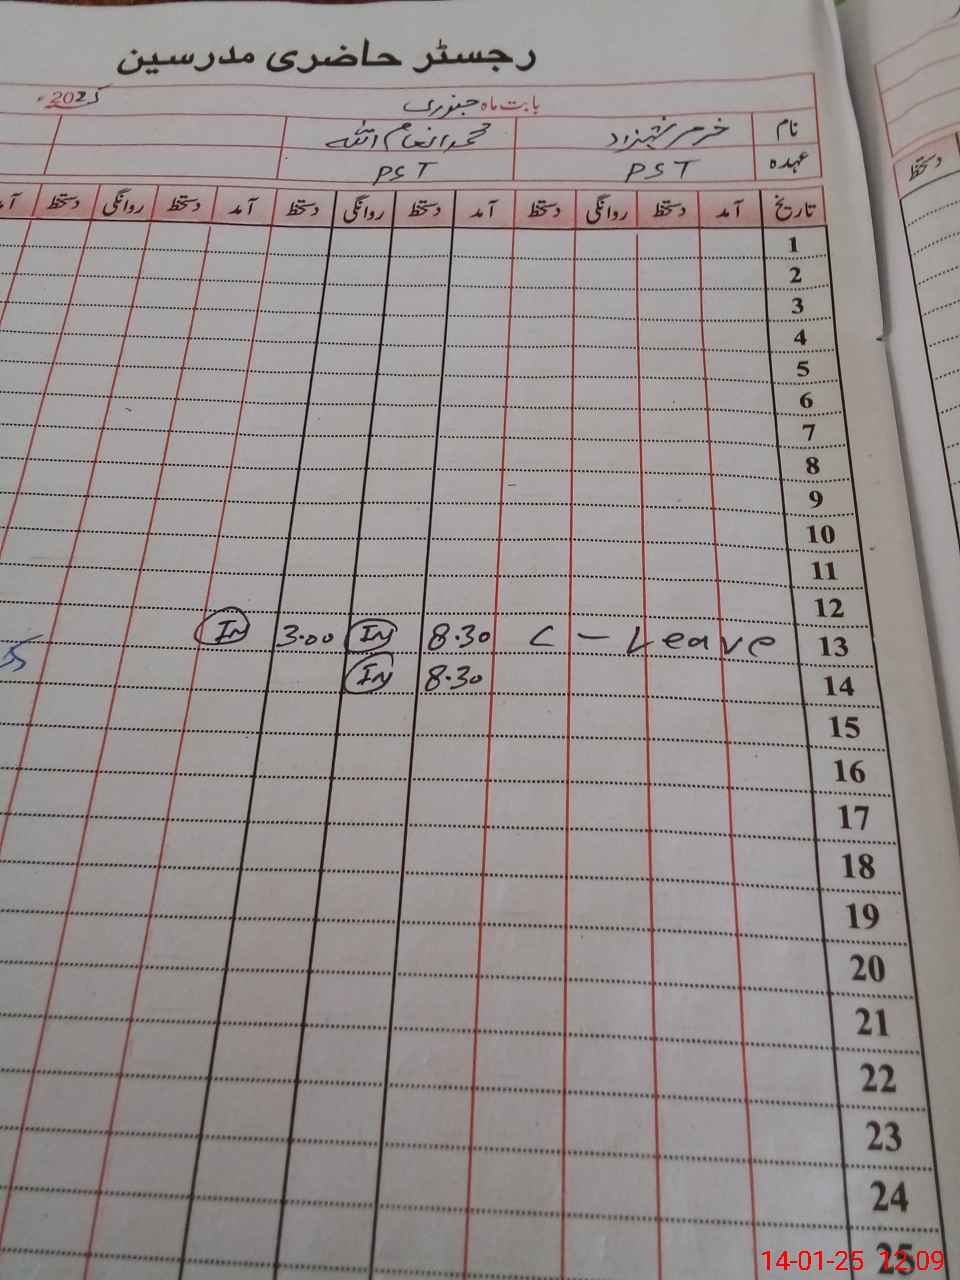 رجسٹر حاضری مدرسین
بابت ماہ جنوری 2025ء
نام خرم شہزاد محمد انعام اللہ
عہدہ PST PST
تاریخ آمد دستخط روانگی دستخط آمد دستخط روانگی دستخط آمد دستخط روانگی دستخط آمد
1
2
3
4
5
6
7
8
9
10
11
12
13 C - Leave 8.30 In 3.00 In
14 8.30 In
15
16
17
18
19
20
21
22
23
24
25
دستخط
14-01-25 12:09